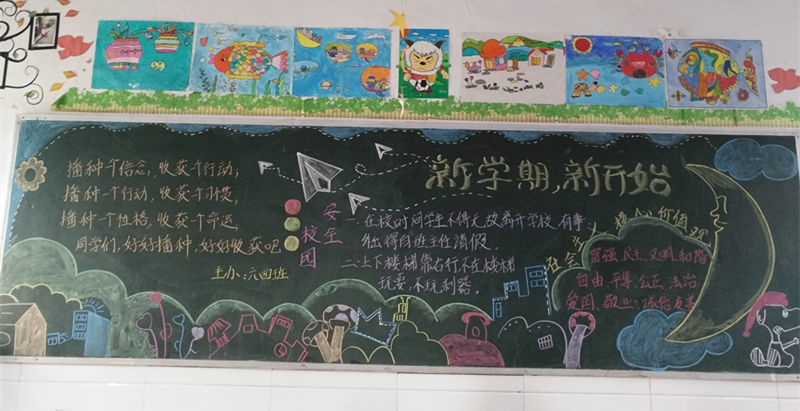 新学期,新开始
播种一个信念,收获一个行动,
播种一个行动,收获一个习惯,
播种一个性格,收获一个命运,
同学们,好好播种,好好收获吧
主办:六四班
安全
校园
一.在校时间学生不得无故离开学校,有事
外出得向班主任请假.
二.上下楼梯靠右行,不在楼梯
玩耍,不玩利器.
社会主义核心价值观
富强 民主 文明 和谐
自由 平等 公正 法治
爱国 敬业 诚信 友善